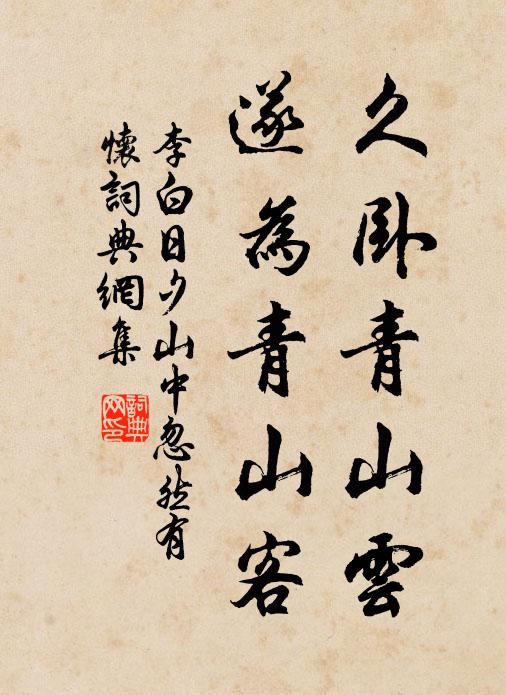 久卧青山雲
遂為青山客
李白日夕山中忽然有
懷詞典網集
詞典
网印